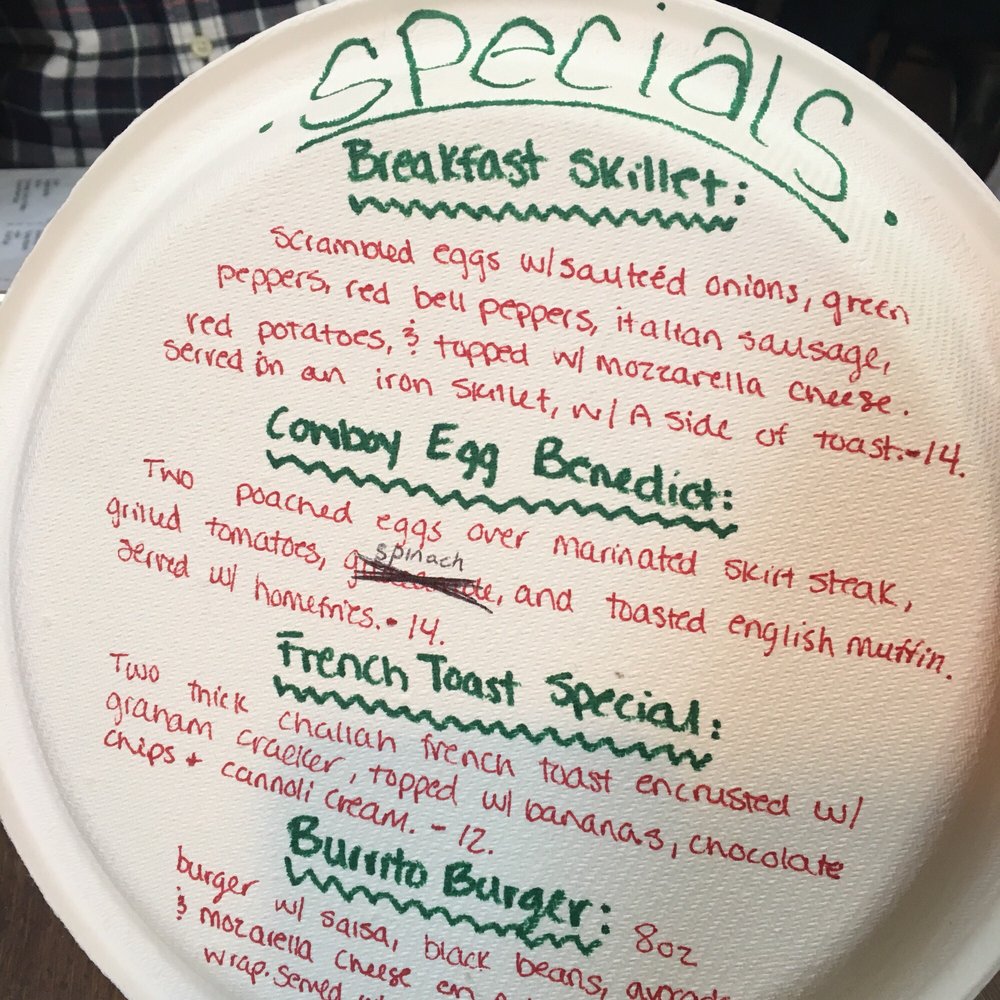 .SPECIALS.
Breakfast Skillet:
scrambled eggs w/sauteéd onions, green
peppers, red bell peppers, italian sausage,
red potatoes, & topped w/ mozzarella cheese.
served on an iron skillet, w/ A side of toast.-14.
Cowboy Egg Benedict:
Two poached eggs over marinated skirt steak,
grilled tomatoes, spinach, and toasted english muffin.
served w/ homefries. - 14.
French Toast Special:
Two thick challah french toast encrusted w/
graham craeker, topped w/ bananas, chocolate
chips + cannoli cream. - 12.
Burrito Burger: 8oz
burger w/ salsa, black beans,
& mozarella cheese on
wrap. Served